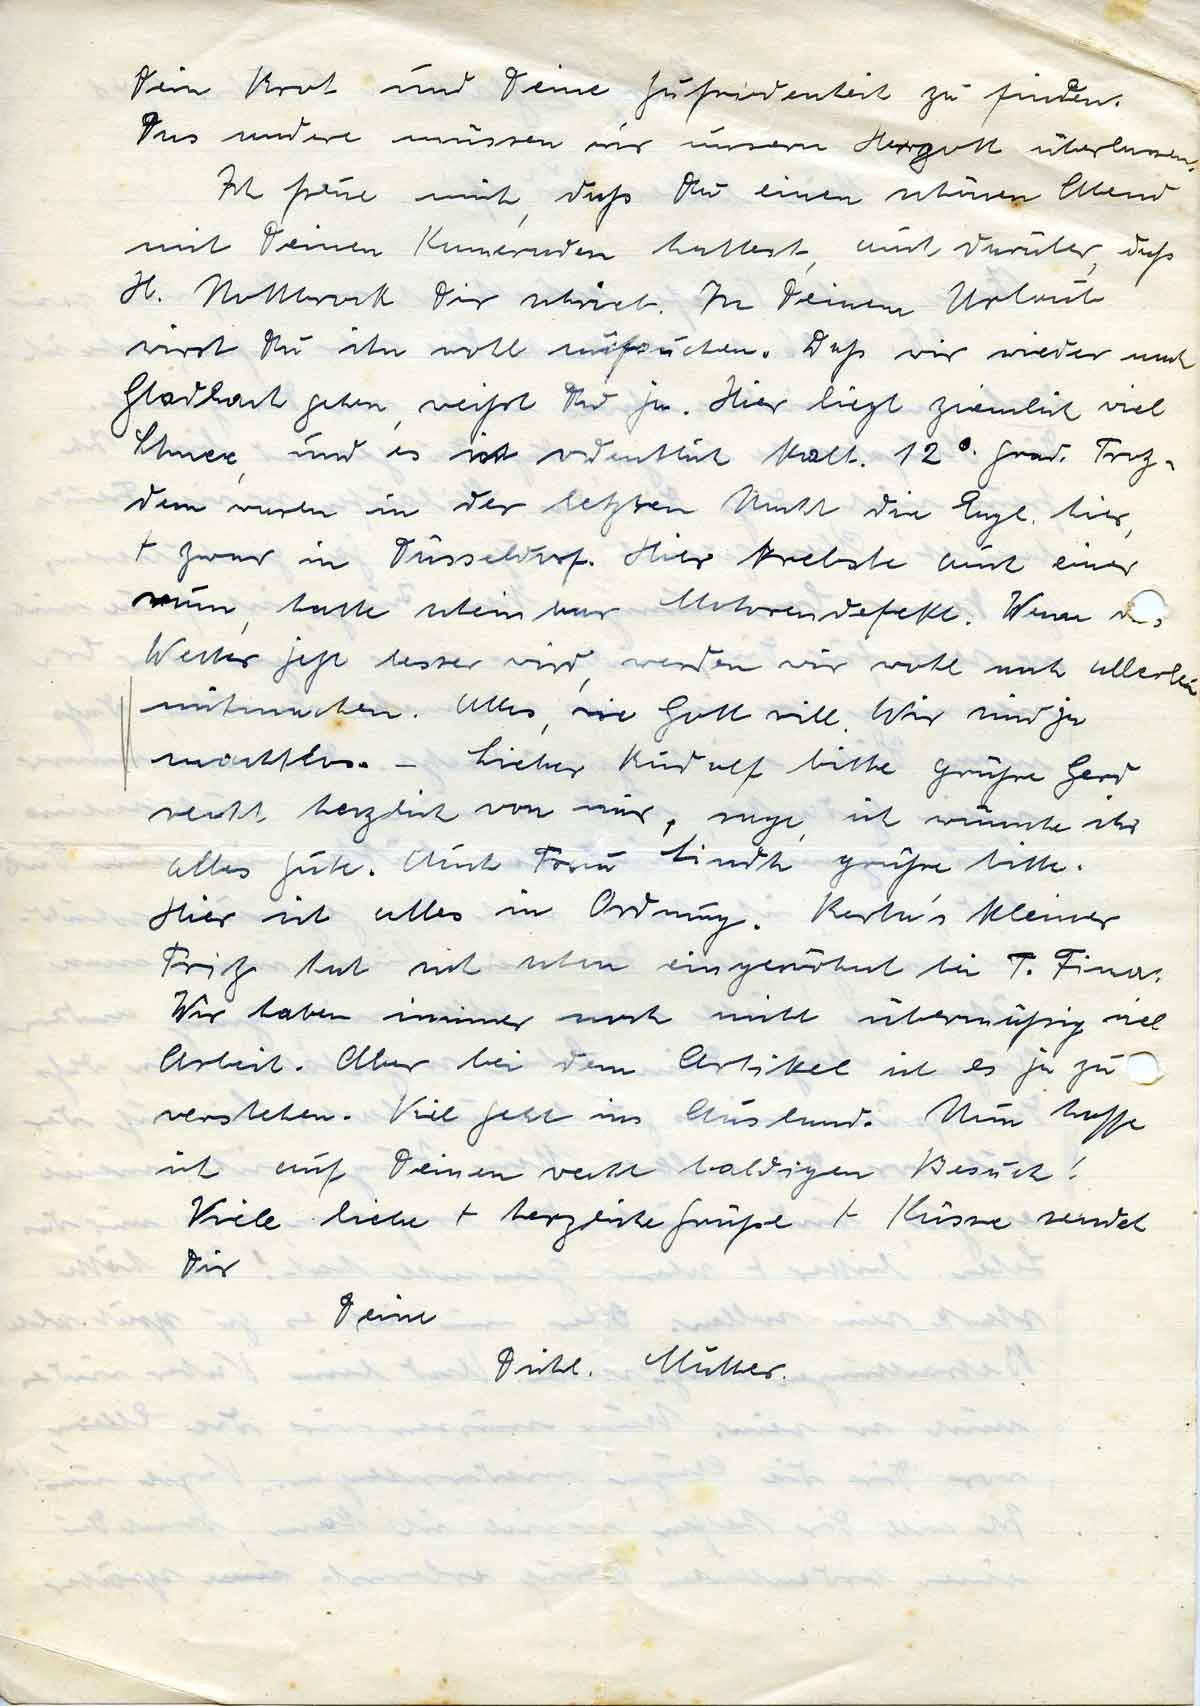 Dein Brot und Deine Zufriedenheit zu finden.
Das andere müssen wir unsern Herrgott überlassen.
Ich freue mich, daß Du einen schönen Abend
mit Deinen Kameraden hattest, auch darüber, daß
H. Nottbrock Dir schrieb. In Deinem Urlaub
wirst Du ihn wohl aufsuchen. Daß wir wieder nach
Gladbach gehen, weißt Du ja. Hier liegt ziemlich viel
Schnee, und es ist odentlich kalt. 12°. Grad. Troz-
dem waren in der letzten Nacht die Engl. hier,
+ zwar in Düsseldorf. Hier krebste auch einer
rum, hatte scheinbar Motorendefekt. Wenn d.
Wetter jetzt besser wird, werden wir wohl noch allerlei
mitmachen. Alles, wie Gott will. Wir sind ja
machtlos. – Lieber Rudolf bitte grüße Gerd
recht herzlich von mir, sage, ich wünsche ihr
alles Gute. Auch Frau Lindt grüße bitte.
Hier ist alles in Ordnung. Herta's kleiner
Fritz hat sich schon eingewöhnt bei T. Fina.
Wir haben immer noch mitt übermäßig viel
Arbeit. Aber bei dem Artikel ist es ja zu
verstehen. Viel geht ins Ausland. Nun hoffe
ich auf Deinen recht baldigen Besuch!
Viele liebe + herzliche Grüße + Küsse sendet
Dir
Deine
Dichl. Mutter.